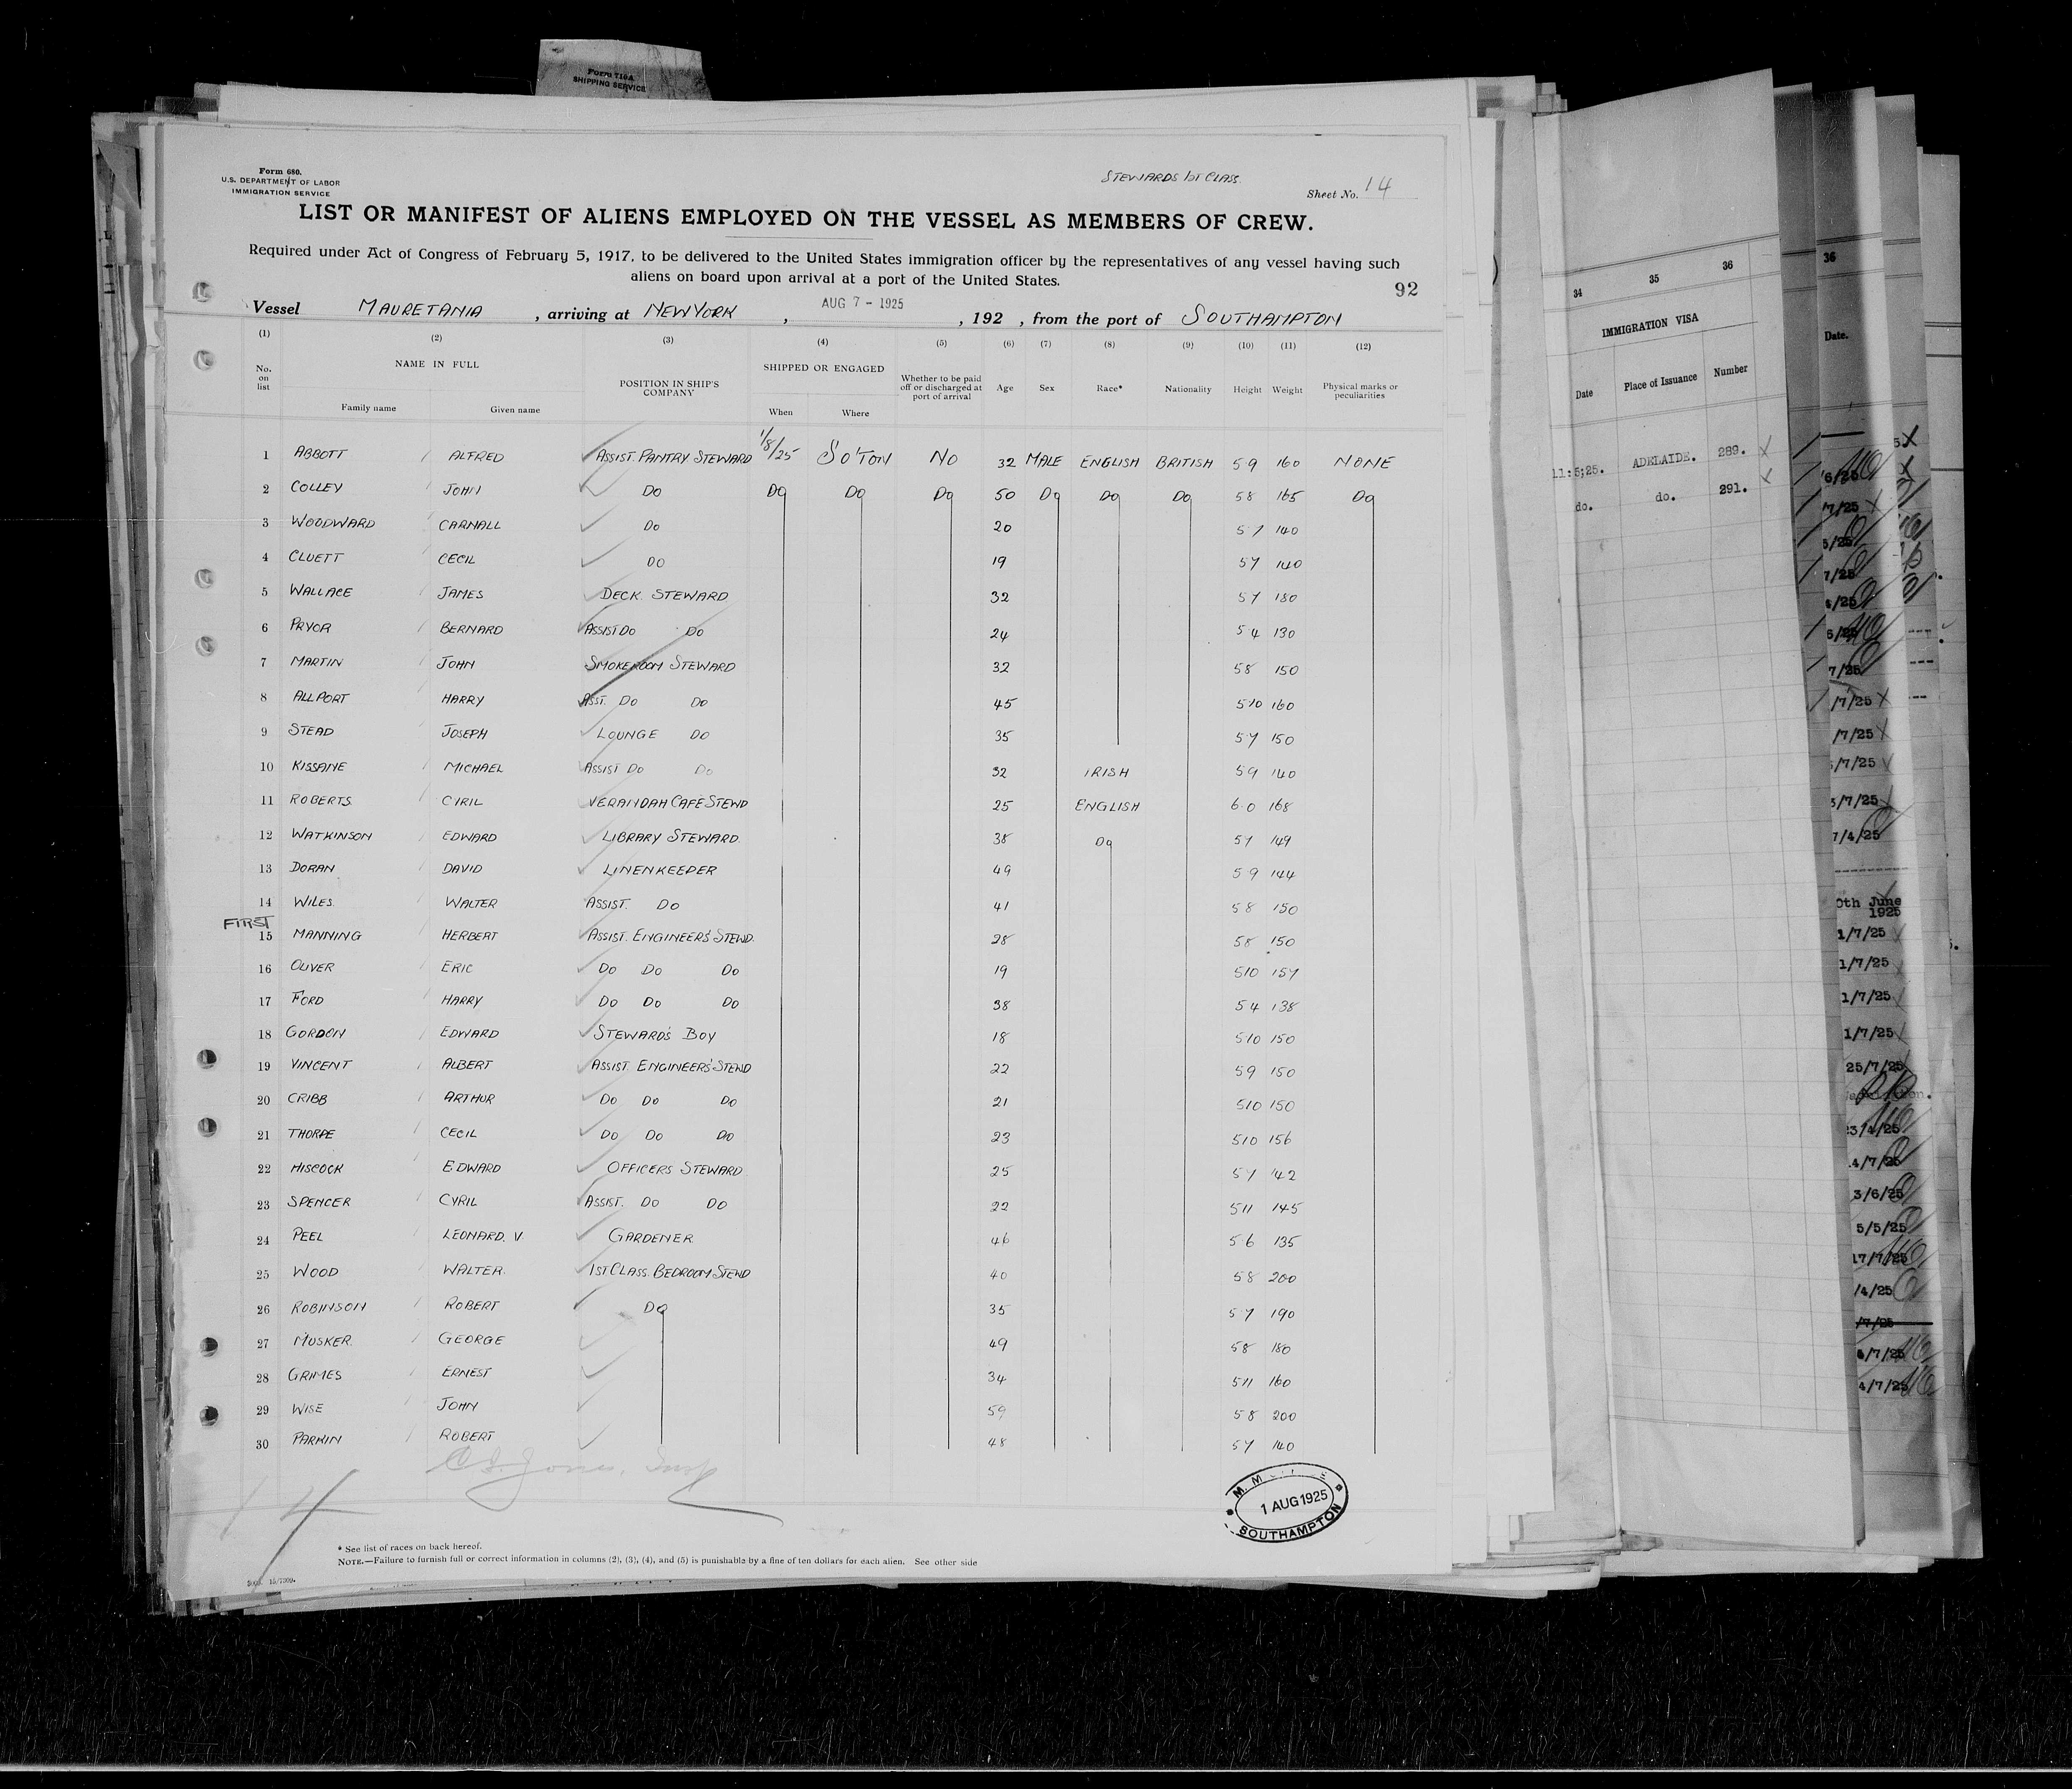 Form 710A
SHIPPING SERVICE
Form 680.
U.S. DEPARTMENT OF LABOR
IMMIGRATION SERVICE
STEWARDS 1ST CLASS.
Sheet No. 14
LIST OR MANIFEST OF ALIENS EMPLOYED ON THE VESSEL AS MEMBERS OF CREW.
Required under Act of Congress of February 5, 1917, to be delivered to the United States immigration officer by the representatives of any vessel having such
aliens on board upon arrival at a port of the United States.
92
Vessel MAURETANIA, arriving at NEW YORK, AUG 7 - 1925, 192 , from the port of SOUTHAMPTON
(1) (2) (3) (4) (5) (6) (7) (8) (9) (10) (11) (12)
No. on list NAME IN FULL Family name Given name POSITION IN SHIP'S COMPANY SHIPPED OR ENGAGED When Where Whether to be paid off or discharged at port of arrival Age Sex Race* Nationality Height Weight Physical marks or peculiarities
1 ABBOTT ALFRED ASSIST. PANTRY STEWARD 1/8/25 SO'TON NO 32 MALE ENGLISH BRITISH 5 9 160 NONE
2 COLLEY JOHN DO DO DO DO 50 DO DO DO 5 8 165 DO
3 WOODWARD CARNALL DO 20 5 7 140
4 CLUETT CECIL DO 19 5 7 140
5 WALLACE JAMES DECK STEWARD 32 5 7 180
6 PRYOR BERNARD ASSIST DO DO 24 5 4 130
7 MARTIN JOHN SMOKEROOM STEWARD 32 5 8 150
8 ALLPORT HARRY ASST. DO DO 45 5 10 160
9 STEAD JOSEPH LOUNGE DO 35 5 7 150
10 KISSANE MICHAEL ASSIST DO DO 32 IRISH 5 9 140
11 ROBERTS CYRIL VERANDAH CAFE STEWD 25 ENGLISH 6 0 168
12 WATKINSON EDWARD LIBRARY STEWARD. 38 DO 5 7 149
13 DORAN DAVID LINENKEEPER 49 5 9 144
14 WILES. WALTER ASSIST. DO 41 5 8 150
FIRST
15 MANNING HERBERT ASSIST. ENGINEERS' STEWD. 28 5 8 150
16 OLIVER ERIC DO DO DO 19 5 10 157
17 FORD HARRY DO DO DO 38 5 4 138
18 GORDON EDWARD STEWARD'S BOY 18 5 10 150
19 VINCENT ALBERT ASSIST. ENGINEERS' STEWD 22 5 9 150
20 CRIBB ARTHUR DO DO DO 21 5 10 150
21 THORPE CECIL DO DO DO 23 5 10 156
22 HISCOCK EDWARD OFFICERS STEWARD 25 5 7 142
23 SPENCER CYRIL ASSIST. DO DO 22 5 11 145
24 PEEL LEONARD. V GARDENER 46 5 6 135
25 WOOD WALTER. 1ST CLASS. BEDROOM STEWD 40 5 8 200
26 ROBINSON ROBERT DO 35 5 7 190
27 MUSKER. GEORGE 49 5 8 180
28 GRIMES ERNEST 34 5 11 160
29 WISE JOHN 59 5 8 200
30 PARKIN ROBERT 48 5 7 140
14
1 AUG 1925
SOUTHAMPTON
* See list of races on back hereof.
NOTE.—Failure to furnish full or correct information in columns (2), (3), (4), and (5) is punishable by a fine of ten dollars for each alien. See other side
34 35 36
IMMIGRATION VISA
Date Place of Issuance Number
11:5;25. ADELAIDE. 289. X
do. do. 291. X
36
Date.
7/25
5/25
7/25
7/25
/7/25
/7/25
/7/25
7/4/25
0th June
1925
1/7/25
1/7/25
1/7/25
1/7/25
25/7/25
23/4/25
4/7/25
3/6/25
5/5/25
17/7/25
/4/25
/7/25
4/7/25